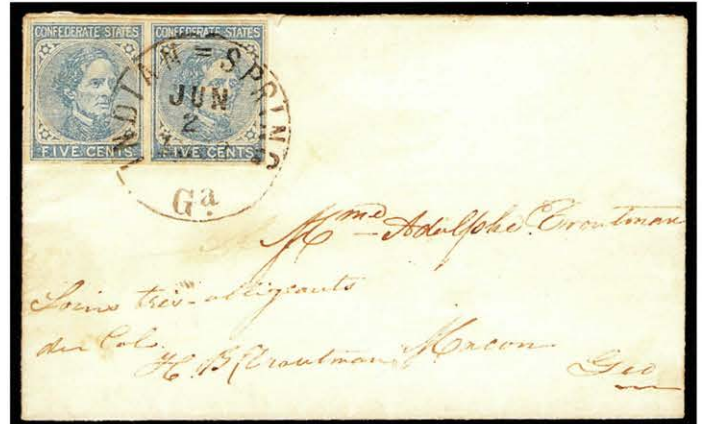 CONFEDERATE STATES CONFEDERATE STATES
FIVE CENTS FIVE CENTS
INDIAN=SPRING
JUN
2
Ga.
Mme Adolphe Troutman
Soins très-obligeants
du Col.
H. B. Troutman Macon
Geo